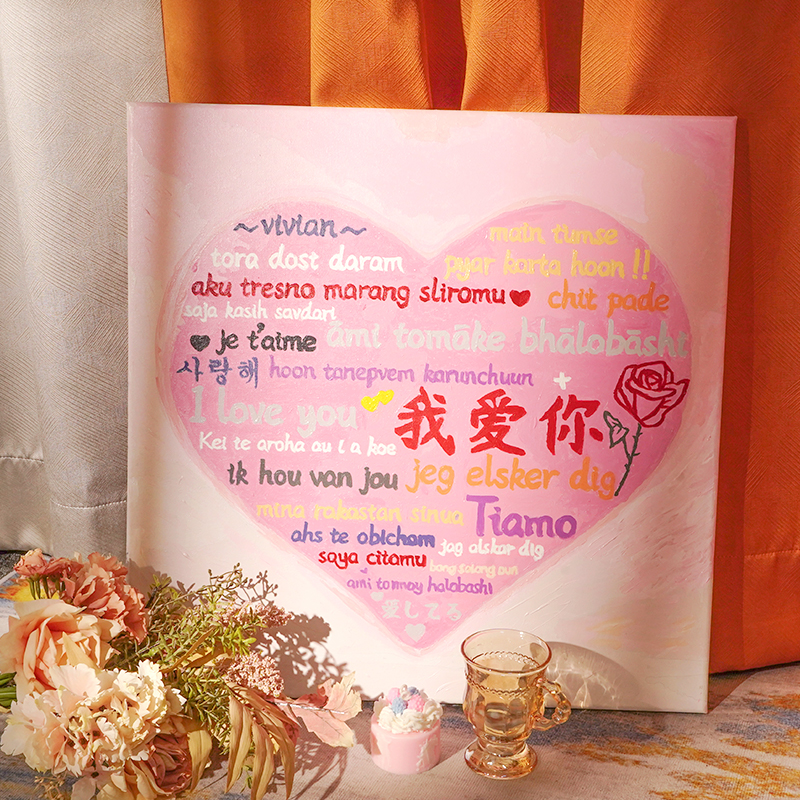 ~vivian~
main tumse
tora dost daram
pyar karta hoon !!
aku tresno marang sliromu
chit pade
saja kasih savdari
je t'aime
ámi tomāke bhālobāshi
사랑해
hoon tanepvem karunchuun
I love you
我爱你
Kei te aroha au i a koe
ik hou van jou
jeg elsker dig
mina rakastan sinua
Tiamo
ahs te obicham
jag alskar dig
saya citamu
bong salang oun
ami tommoy halobashi
愛してる